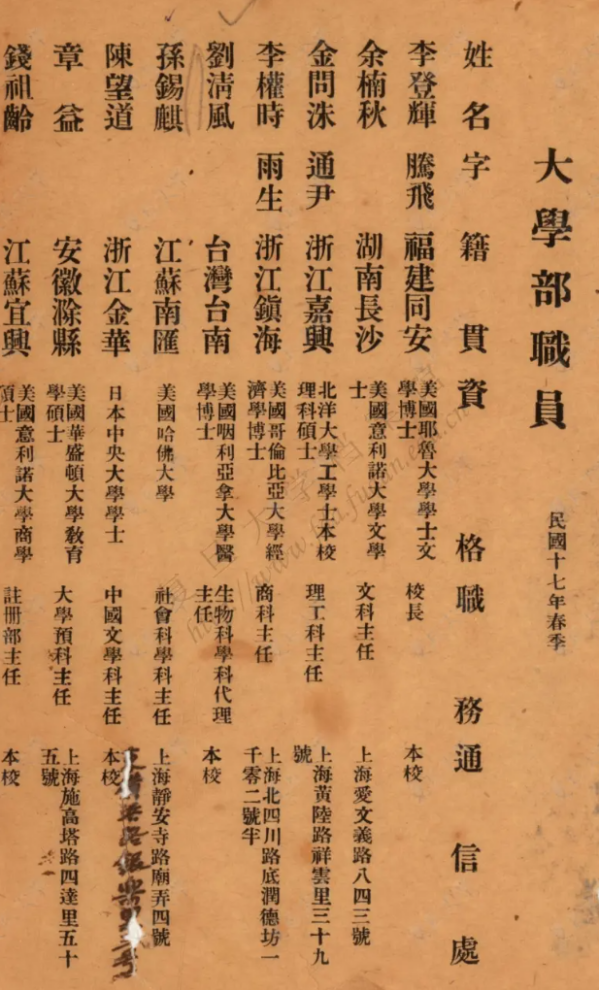 大學部職員
民國十七年春季
姓名 字 籍貫 資格 職務 通信處
李登輝 騰飛 福建同安 美國耶魯大學學士文學博士 校長 本校
余楠秋 湖南長沙 美國意利諾大學文學士 文科主任 上海愛文義路八四三號
金問洙 通尹 浙江嘉興 北洋大學工學士本校理科碩士 理工科主任 上海黃陸路祥雲里三十九號
李權時 雨生 浙江鎮海 美國哥倫比亞大學經濟學博士 商科主任 上海北四川路底潤德坊一千零二號半
劉清風 台灣台南 美國咽利亞拿大學醫學博士 生物科學科代理主任 本校
孫錫麒 江蘇南匯 美國哈佛大學 社會科學科主任 上海靜安寺路廟弄四號
陳望道 浙江金華 日本中央大學學士 中國文學科主任 本校
章益 安徽滁縣 美國華盛頓大學教育學碩士 大學預科主任 上海施高塔路四達里五十五號
錢祖齡 江蘇宜興 美國意利諾大學商學碩士 註冊部主任 本校